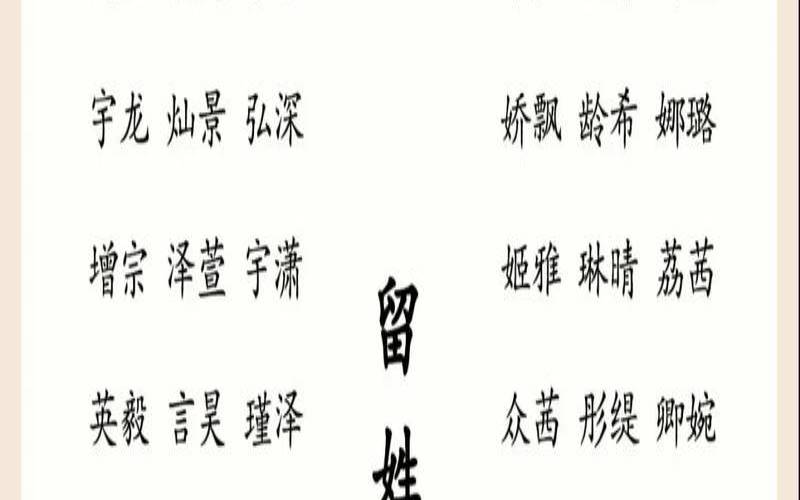 宇龙 灿景 弘深
娇飘 龄希 娜璐
增宗 泽萱 宇潇
姬雅 琳晴 荔茜
留姓
英毅 言昊 瑾泽
众茜 彤缇 卿婉